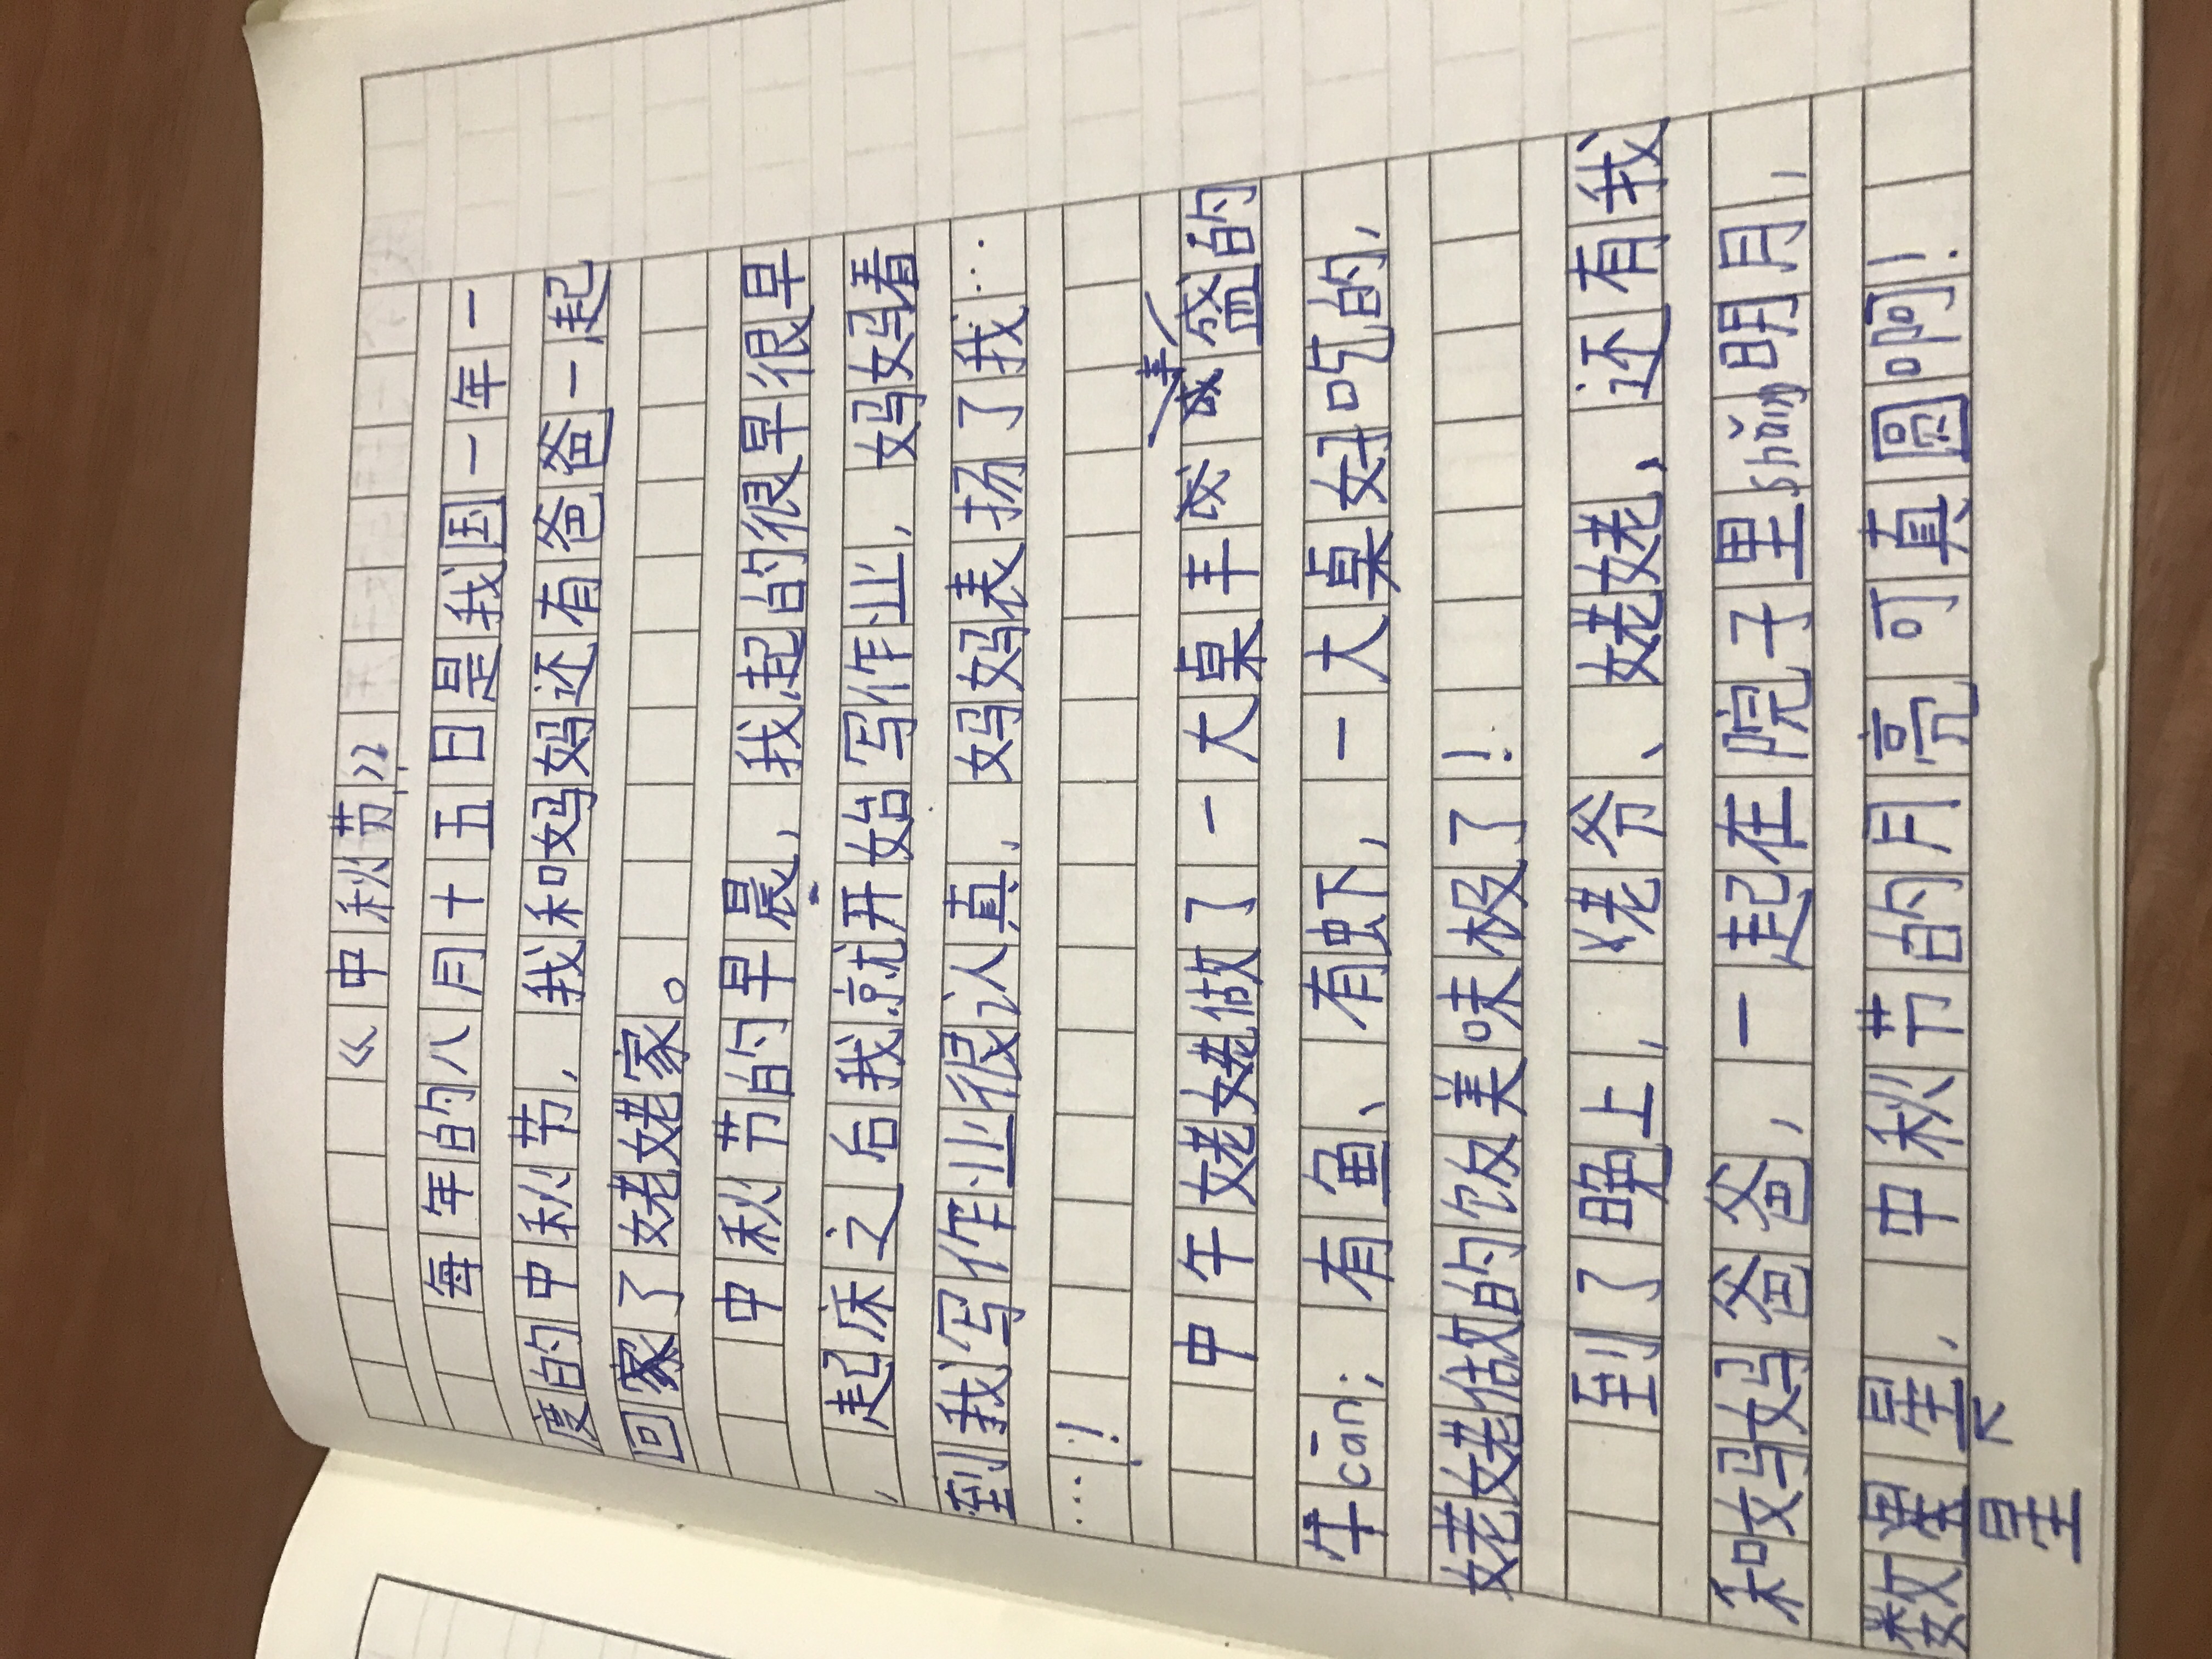 《中秋节》
每年的八月十五日是我国一年一
度的中秋节，我和妈妈还有爸爸一起
回家了姥姥家。
中秋节的早晨，我起的很早很早
，起床之后我就开始写作业，妈妈看
到我写作业很认真，妈妈表扬了我…
…！
中午姥姥做了一大桌丰盛的
午cān；有鱼、有虾，一大桌好吃的，
姥姥做的饭美味极了！
到了晚上，姥爷、姥姥，还有我
和妈妈爸爸，一起在院子里shǎng明月，
数星星，中秋节的月亮可真圆啊！